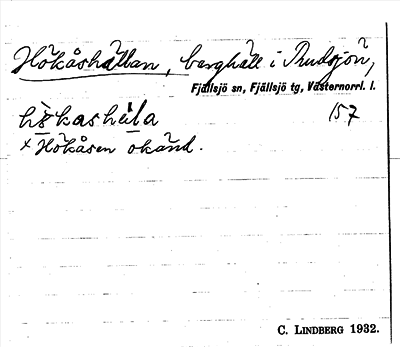 Hökåshällan, berghäll i Rudsjön,
Fjällsjö sn, Fjällsjö tg, Västernorrl. l.
157
× Hökåsen okänd.
C. LINDBERG 1932.